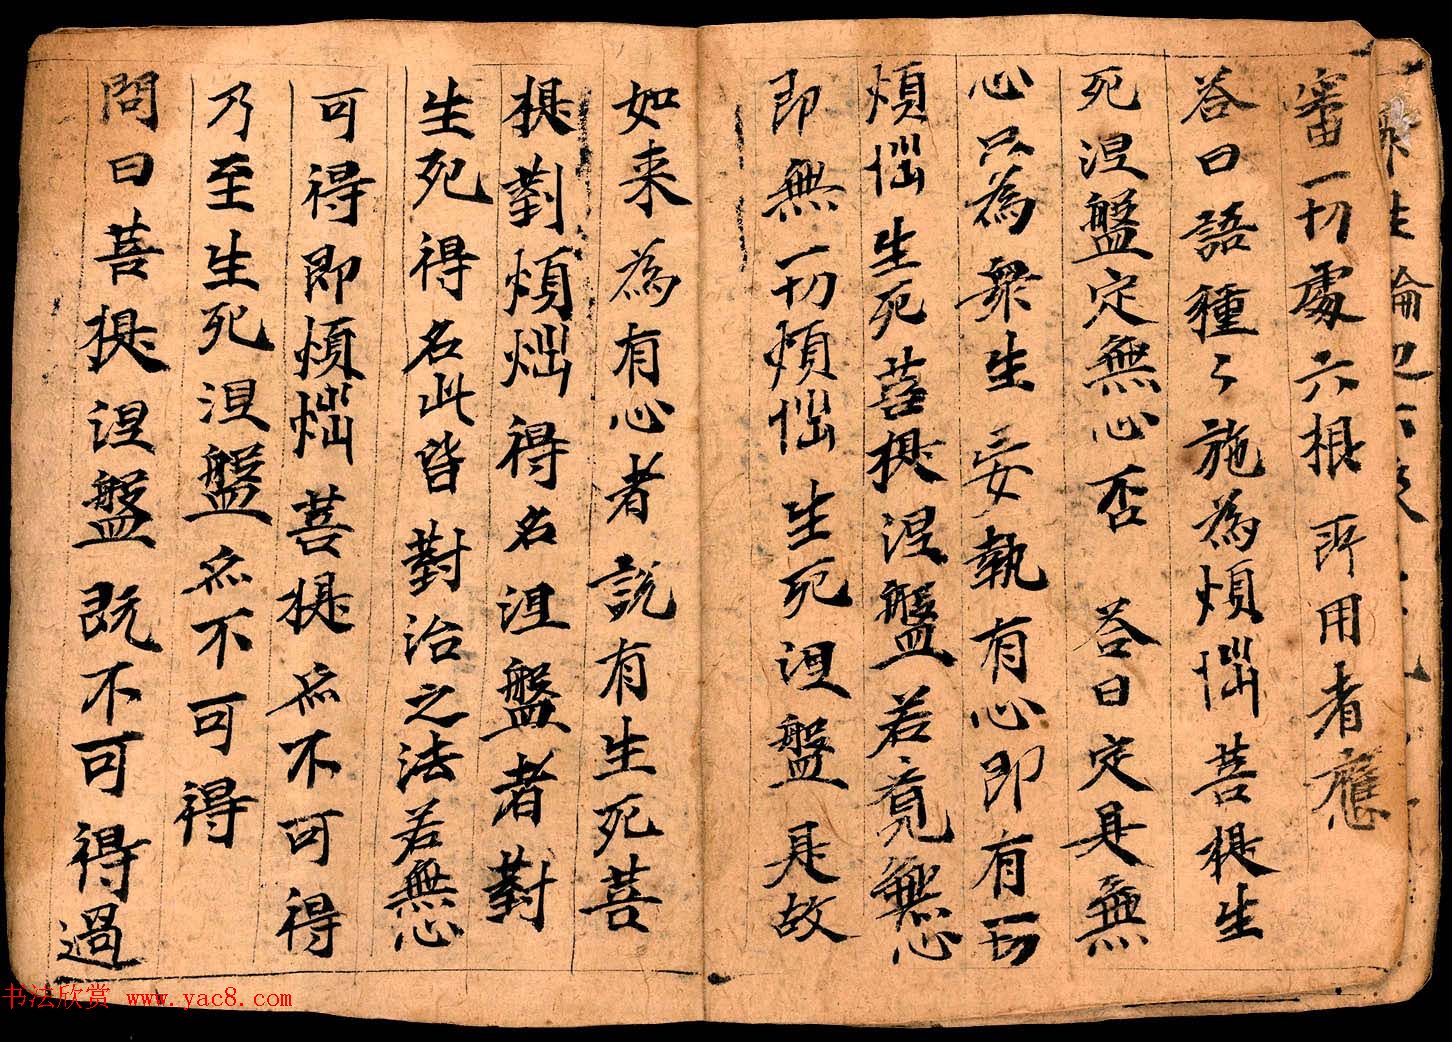 審一切處六根所用者應
答曰語種々施為煩惱菩提生
死涅盤定無心否 答曰定是無
心只為衆生妄執有心即有一切
煩惱生死菩提涅盤若覓無心
即無一切煩惱生死涅盤是故
如来為有心者說有生死菩
提對煩惱得名涅盤者對
生死得名此皆對治之法若無心
可得即煩惱菩提亦不可得
乃至生死涅盤亦不可得
問曰菩提涅盤既不可得過
书法欣赏 www.yac8.com